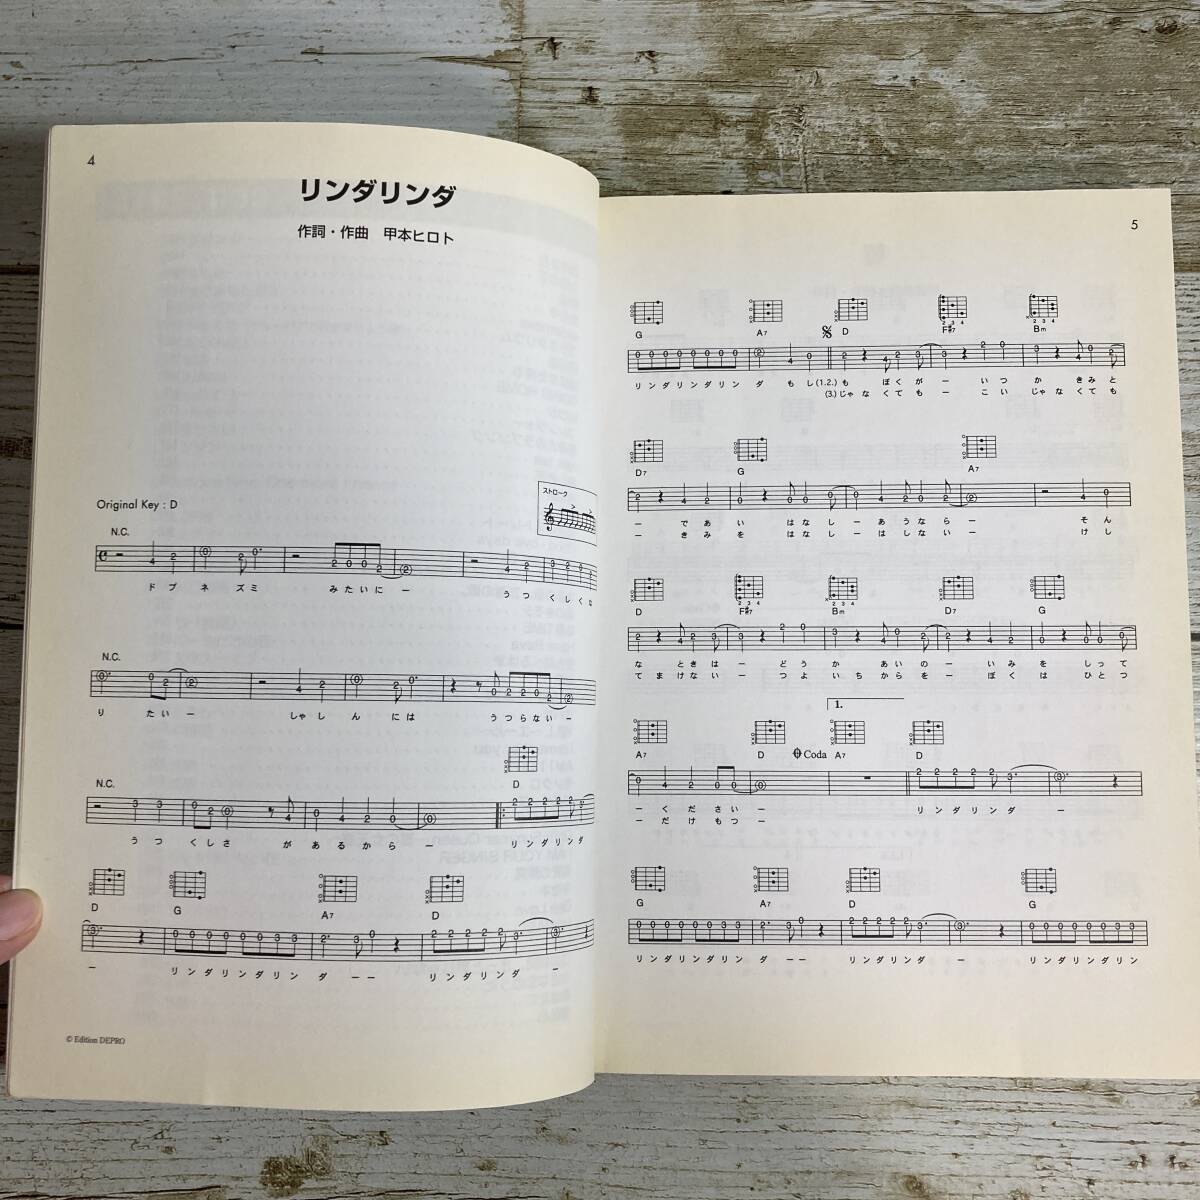 4
リンダリンダ
作詞・作曲　甲本ヒロト
Original Key : D
ストローク
N.C.
ド ブ ネ ズ ミ み た い に ー う つ く し く な
N.C.
り た い ー しゃ し ん に は う つ ら な い ー
D
N.C.
う つ く し さ が あ る か ら ー リ ン ダ リ ン ダ
D G A7 D
ー リ ン ダ リ ン ダ リ ン ダ ー ー リ ン ダ リ ン ダ ー
© Edition DEPRO
5
G A7 D F#7 Bm
2 3 4 2 3 4
リ ン ダ リ ン ダ リ ン ダ も し (1.2.) も ぼ く が ー い つ か き み と
(3.) じゃ な く て も ー こ い じゃ な く て も
D7 G A7
ー で あ い は な し ー あ う な ら ー そ ん
ー き み を は な し ー は し な い ー け し
D F#7 Bm D7 G
2 3 4 2 3 4
な と き は ー ど う か あ い の ー い み を し っ て
て ま け な い ー つ よ い ち か ら を ー ぼ く は ひ と つ
1.
A7 D Coda A7 D
ー く だ さ い ー リ ン ダ リ ン ダ ー
ー だ け も つ ー
G A7 D G
リ ン ダ リ ン ダ リ ン ダ ー ー リ ン ダ リ ン ダ ー リ ン ダ リ ン ダ リ ン